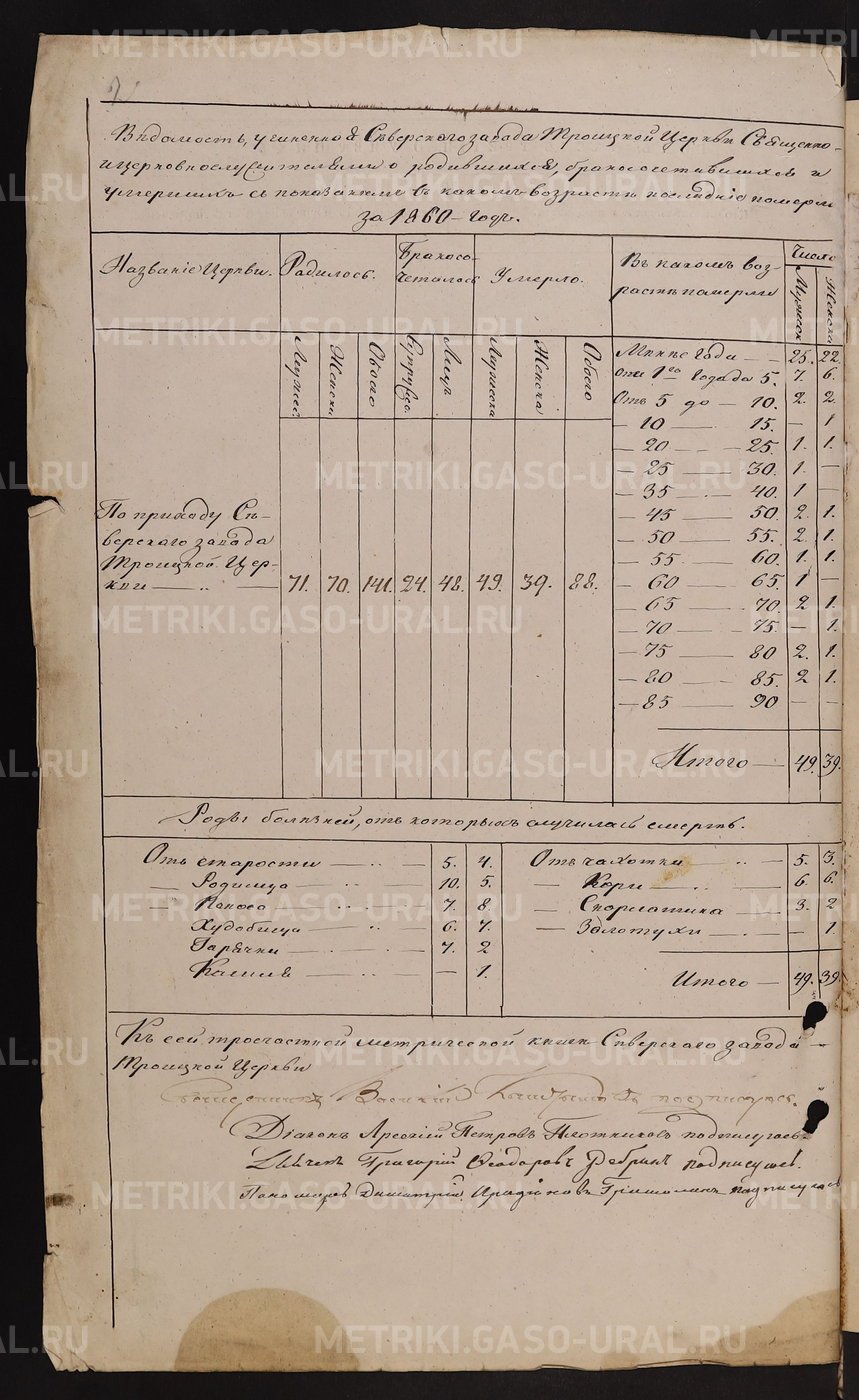 Вѣдомость, учиненная Сѣверскаго завода Троицкой Церкви Священно-
и церковнослужителями о родившихся, бракосочетавшихся и
умершихъ съ показаніемъ въ какомъ возрастѣ послѣдніе померли
за 1860 годъ.
Названіе Церкви. Родилось. Бракосо-четалось Умерло. Въ какомъ воз-растѣ померли Число
Мужеск Женска
Мужес. Женски. Обоего Супруже. Лицъ Мужеска Женска Обоего
Менѣе года — 25. 22.
отъ 1го года до 5. 7. 6.
Отъ 5 до — 10. 2. 2.
— 10 — 15. — 1
— 20 — 25. 1. 1.
— 25 — 30. 1. —
— 35 — 40. 1 —
— 45 — 50. 2 1.
— 50 — 55. 2. 1.
— 55 — 60. 1. 1.
— 60 — 65. 1 —
— 65 — 70. 2 1.
— 70 — 75. — 1.
— 75 — 80 2. 1.
— 80 — 85. 2 1.
— 85 — 90 — —
По приходу Сѣ-
верскаго завода
Троицкой Цер-
кви — 71. 70. 141. 24. 48. 49. 39. 88.
Итого — 49. 39.
Роды болѣзней, отъ которыхъ случилась смерть.
Отъ старости — 5. 4. Отъ чахотки — 5. 3.
— Родимца — 10. 5. — Кори — 6. 6.
— Поноса — 7. 8. — Скорлатина — 3. 2
Худобища — 6. 7. — Золотухи — — 1.
Горячки — 7. 2
Кашля — — 1. Итого — 49. 39
Къ сей тросчастной метрической книгѣ Сѣверскаго завода
Троицкой Церкви
Священникъ Василій подписуюсь.
Діаконъ Арсеній Петровъ Плотниковъ подписуюсь
Григорій Ѳеодоровъ Ребринъ подписуюсь.
Пономарь Димитрій подписуюсь
METRIKI.GASO-URAL.RU